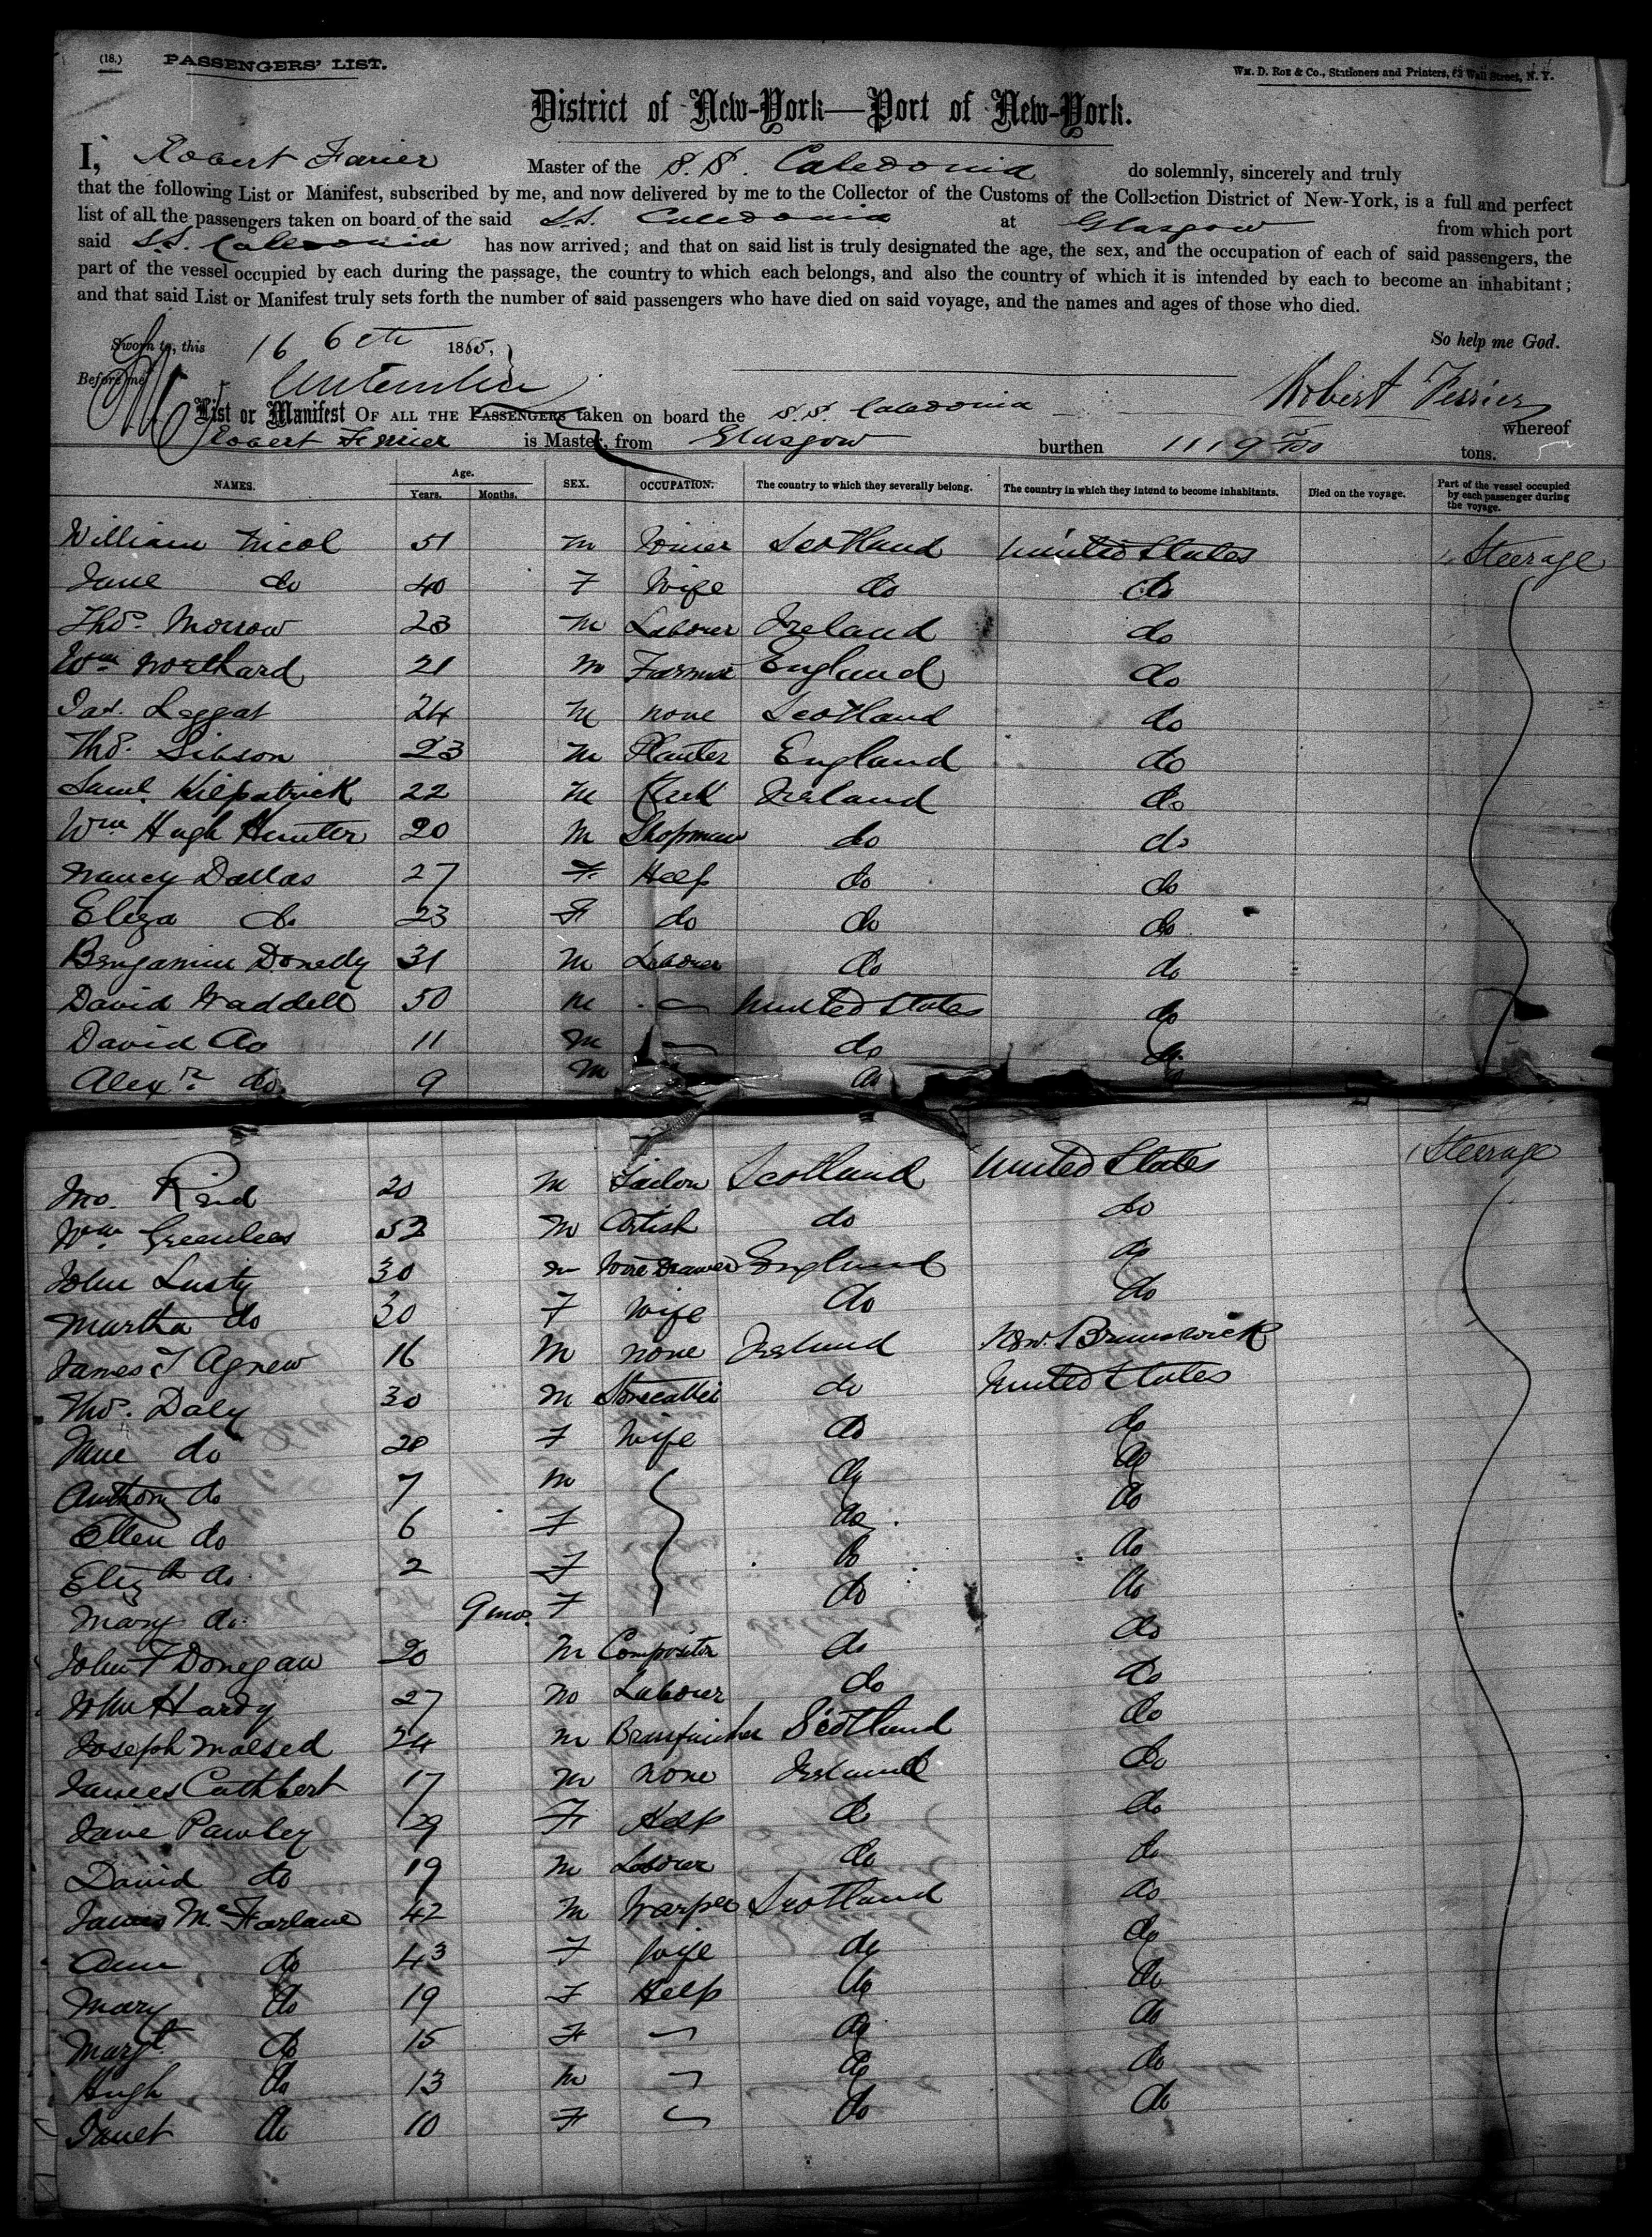 (18.) PASSENGERS' LIST. Wm. D. Roe & Co., Stationers and Printers, 63 Wall Street, N. Y.
District of New-York—Port of New-York.
I, Robert Ferrier Master of the S.S. Caledonia do solemnly, sincerely and truly
that the following List or Manifest, subscribed by me, and now delivered by me to the Collector of the Customs of the Collection District of New-York, is a full and perfect
list of all the passengers taken on board of the said S.S. Caledonia at Glasgow from which port
said S.S. Caledonia has now arrived; and that on said list is truly designated the age, the sex, and the occupation of each of said passengers, the
part of the vessel occupied by each during the passage, the country to which each belongs, and also the country of which it is intended by each to become an inhabitant;
and that said List or Manifest truly sets forth the number of said passengers who have died on said voyage, and the names and ages of those who died.
So help me God.
Sworn to, this 16 Oct 1865,
Before me, Robert Ferrier
List or Manifest OF ALL THE PASSENGERS taken on board the S.S. Caledonia whereof
Robert Ferrier is Master, from Glasgow burthen 1119 tons.
NAMES. Age. Years. Months. SEX. OCCUPATION. The country to which they severally belong. The country in which they intend to become inhabitants. Died on the voyage. Part of the vessel occupied by each passenger during the voyage.
William Nicol 51 M Joiner Scotland United States Steerage
Jane do 40 F Wife do do
Thos. Morrow 23 M Laborer Ireland do
Wm Northard 21 M Farmer England do
Jas. Leggat 24 M none Scotland do
Thos. Gibson 23 M Planter England do
Saml. Kilpatrick 22 M Clerk Ireland do
Wm Hugh Hunter 20 M Shopman do do
Nancy Dallas 27 F Help do do
Eliza do 23 F do do do
Benjamin Donelly 31 M Laborer do do
David Waddell 50 M United States do
David do 11 M do do
Alexr do 9 M do
Jno. Reid 20 M Sailor Scotland United States Steerage
Wm Greenlees 52 M Artist do do
John Lusty 30 M Wire Drawer England do
Martha do 30 F Wife do do
James T Agnew 16 M none Ireland New Brunswick
Thos. Daly 30 M Stonecutter do United States
Jane do 28 F Wife do do
Anthony do 7 M do do
Ellen do 6 F do do
Elizth do 2 F do do
Mary do 9 mos. F do do
John F Donegan 20 M Compositor do do
John Hardy 27 M Labourer do do
Joseph Molsed 24 M Brassfinisher Scotland do
James Cuthbert 17 M none Ireland do
Jane Pawley 29 F Help do do
David do 19 M Laborer do do
James McFarlane 42 M Warper Scotland do
Ann do 43 F Wife do do
Mary do 19 F Help do do
Margt do 15 F do do
Hugh do 13 M do do
Janet do 10 F do do